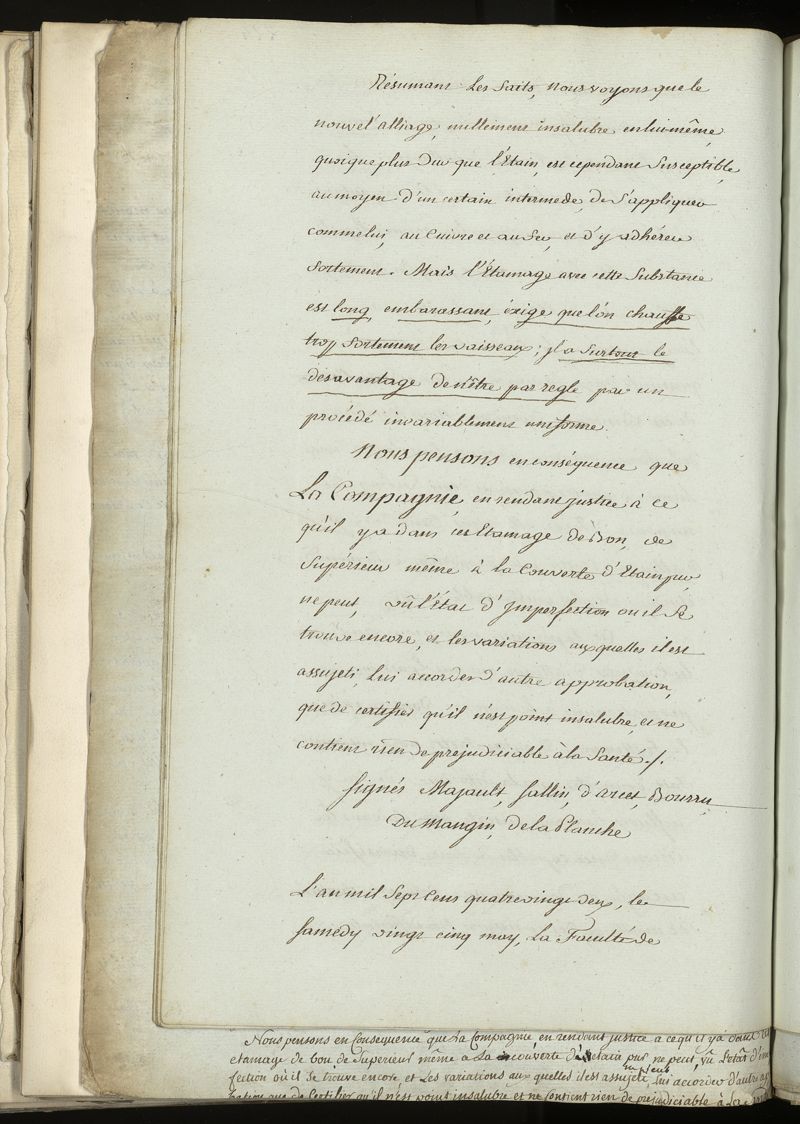 Résumant Les faits, nous voyons que le
nouvel alliage, nullement insalubre en lui-même,
quoique plus Dur que l'Étain, est cependant Susceptible,
au moyen d'un certain intermede, de s'appliquer
comme lui, au Cuivre et au fer, et d'y adhérer
fortement. Mais l'Étamage avec cette Substance
est long, embarassant, éxige que l'on chauffe
trop fortement les vaisseaux ; il a surtout le
desavantage de n'être pas regle par un
procédé invariablement uniforme.
Nous pensons en conséquence que
La Compagnie, en rendant justice à ce
qu'il y a dans cet Etamage de Bon, de
Supérieur même à la Couverte d'Etain pur,
ne peut, vû l'État d'Imperfection ou il se
trouve encore, et les variations auxquelles il est
assujeti, lui accorder d'autre approbation,
que de certifier qu'il n'est point insalubre, et ne
contient rien de prejudiciable à la Santé ./.
Signés Majault, Sallin, d'arcet, Bourru,
Dumangin, de la Planche
L'an mil Sept Cent quatre vingt deux, le
Samedy vingt cinq may, La Faculté de
Nous pensons en Consequence que La Compagnie, en rendant justice a ce qu'il y a dans
etamage de bon de Superieur même a La couverte d'Etain pur, ne peut, vû L'etat d'im
fection où il se trouve encore, et Les variations aux quelles il est assujeti, lui accorder d'autre ap
bation que de Certifier qu'il n'est point insalubre et ne Contient rien de prejudiciable à La